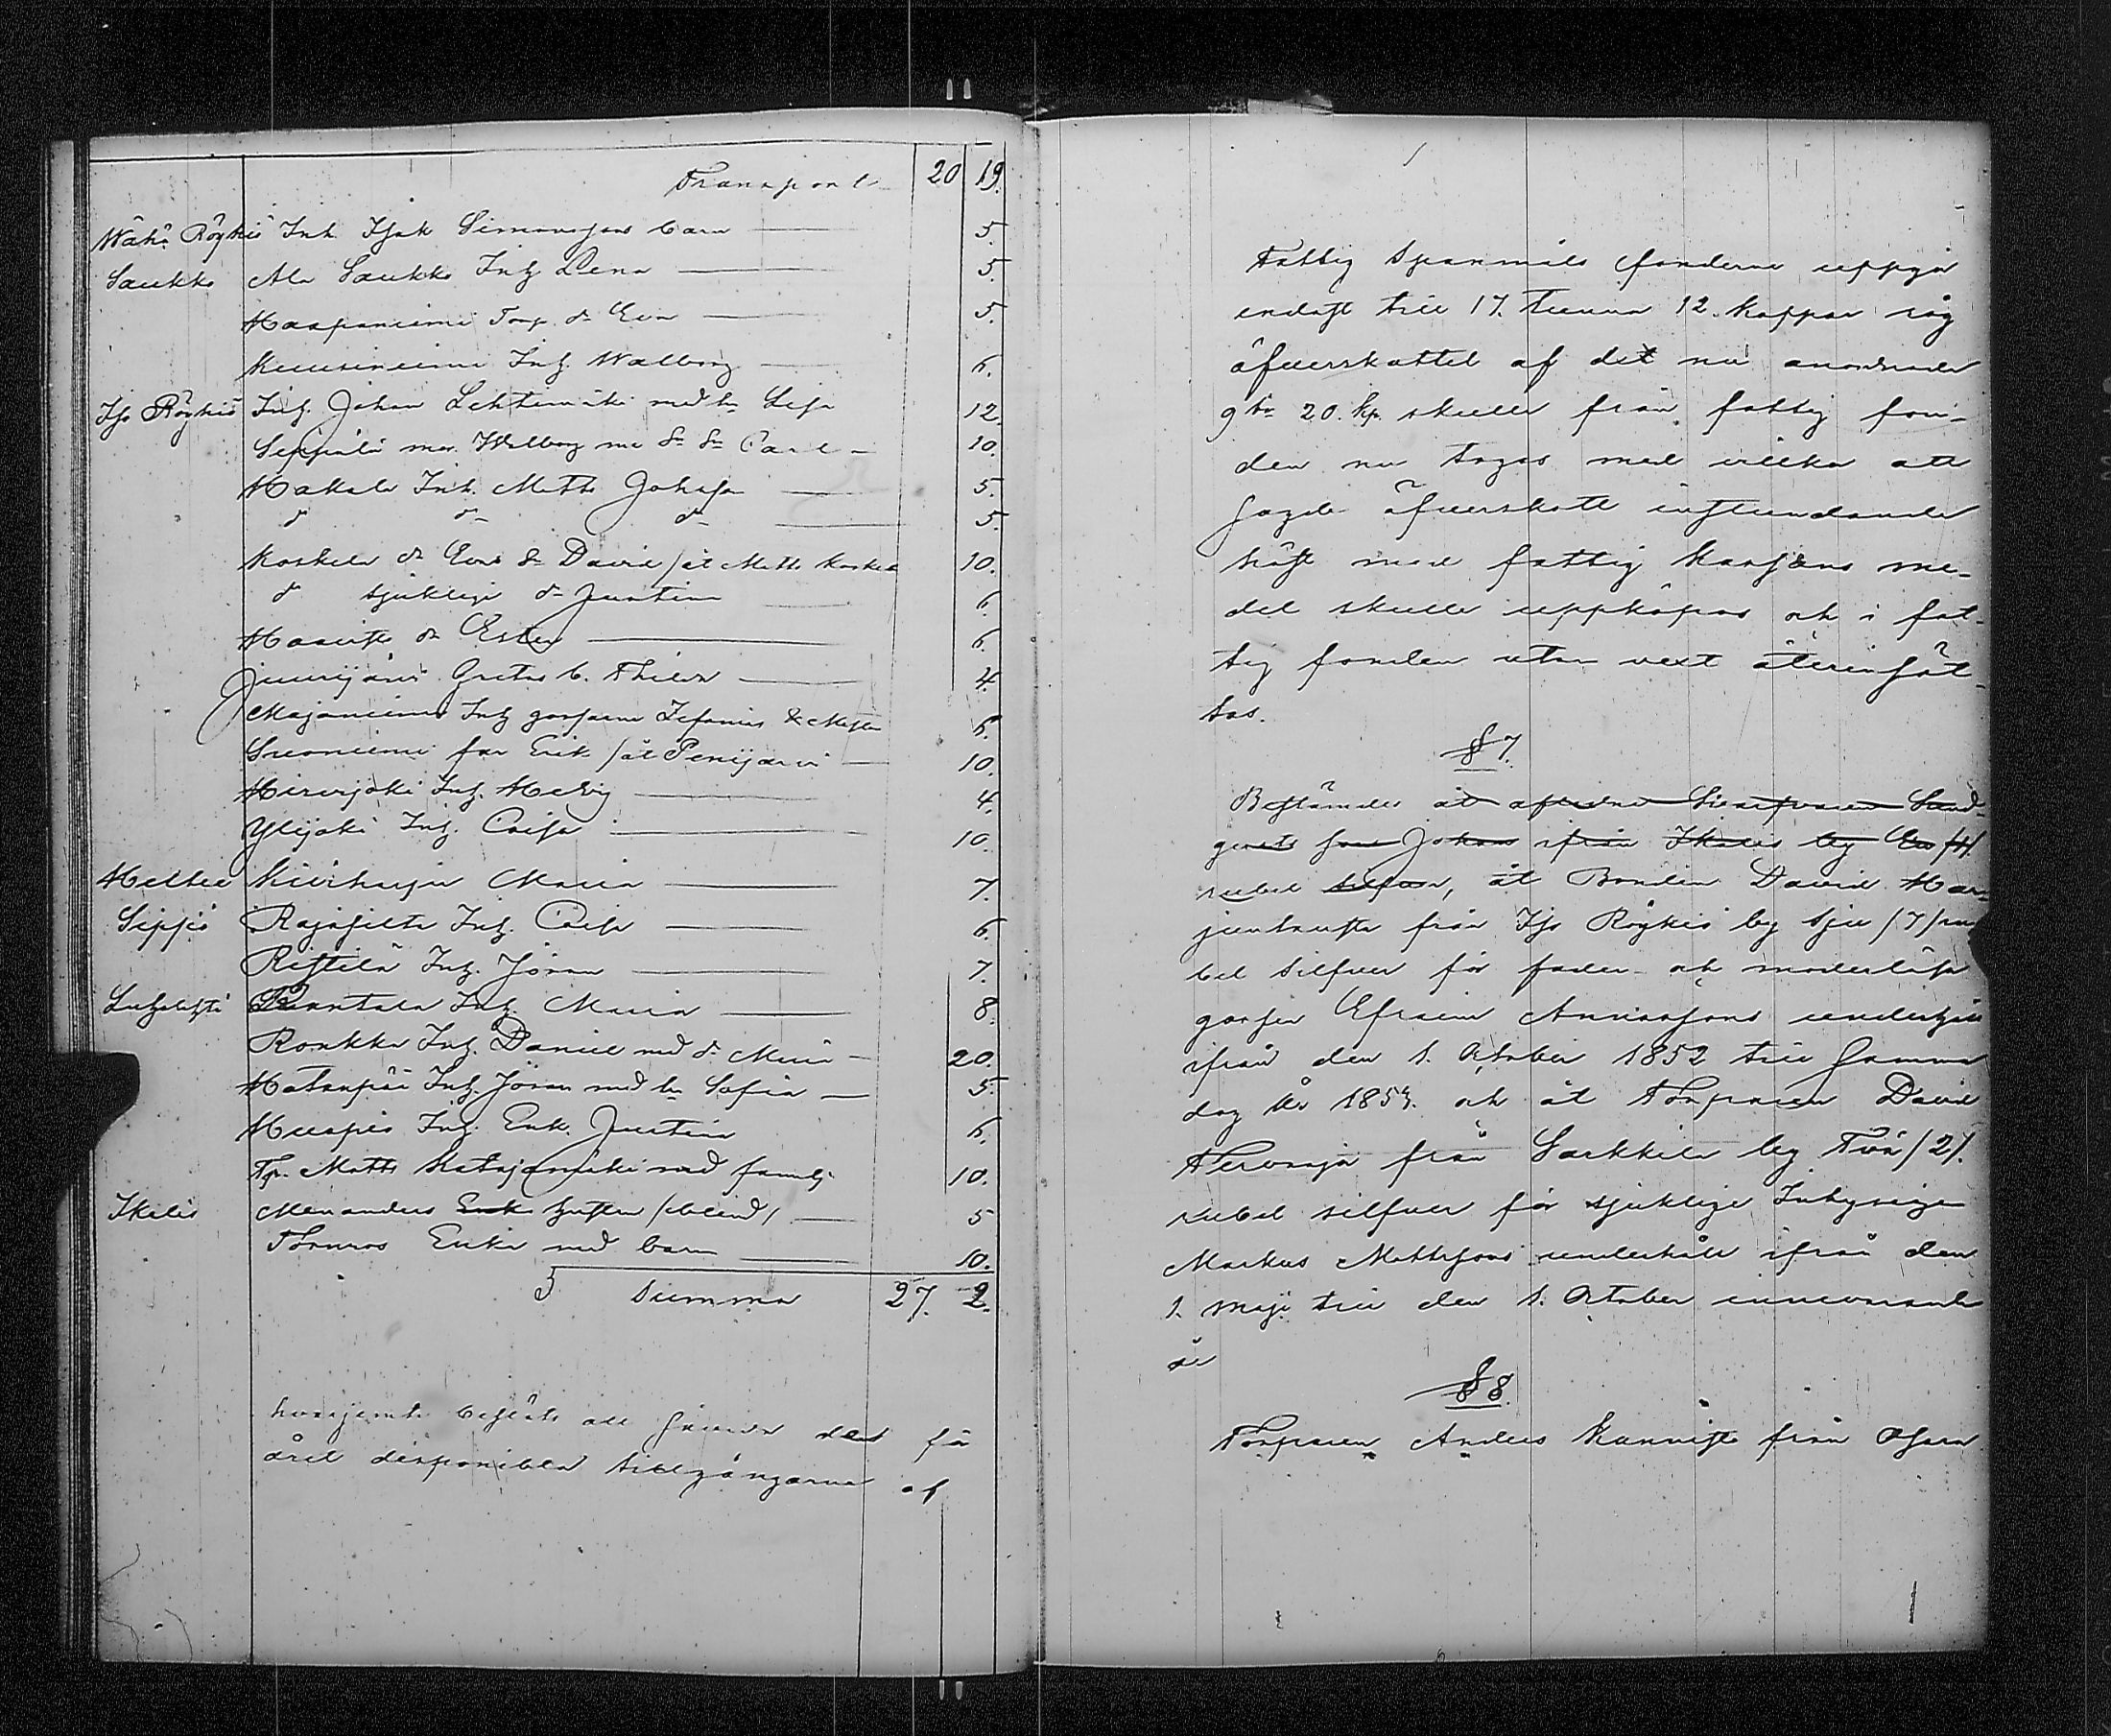 Transport 20 19.
Wähä Röyhiö Inh. Isak Simonsons barn 5.
Saukko Ala Saukko Inh. Lena 5.
Haapaniemi Torp. d:r Eva 5.
Kuusiniemi Inh. Walborg 6.
Iso Röyhiö Inh. Johan Lehtimäki med h:u Lisa 12.
Seppälä Walborg Carl 10.
Hakala Inh. Matts Johansson 5.
d:o d:o d:o 5.
Koskela d:r Eva & David /åt Matts Koskela 10.
d:o sjuklige d:r Justina 6.
Haavisto d:r Ester 6.
Greta b. 4.
Majaniemi Inh. gossarne Zefanias & 6.
Suoniemi far Erik /åt Penijärvi 10.
Hirvijoki Inh. Hedvig 4.
Ylijoki Inh. Caisa 10.
Heltee Kiviharju Maria 7.
Sippis Rajasilta Inh. Caisa 6.
Ristilä Inh. Jöran 7.
Luhalahti Rantala Inh. Maria 8.
Ronkka Inh. Daniel med d:r Maria 20.
Hatanpää Inh. Jöran med h:u Sofia 5.
Inh. Enk. Justina 6.
Tp. Matts Katajamäki med familj 10.
Ikalis Menanders Enka hustru /blind/ 5
Tornroos Enka med barn 10.
Summa 27. 2.
hvarjemte beslöts att den för
året disponibla tillgångarna af
Fattig Spanmåls fonderna uppgå
endast till 17. tunnor 12. kappar råg
öfverskottet af det nu anordnade
9 t:r 20. kp. skulle från fattig fon-
den nu tagas med vilkor att
sagde öfverskott instundande
höst med fattig kassans me-
del skulle uppköpas och i fat-
tig fonden utan vext återinsät-
tas.
§ 7.
Bestämdes åt aflidne Sand-
gren Johan ifrån Ikalis by
rubel silfver, åt Bonden David Har-
juntausta från Iso Röyhiö by sju /7/ ru-
bel silfver för fader- och moderlösa
gossen Efraim Anianssons underhåll
ifrån den 1. October 1852 till samma
dag år 1853. och åt Torparen David
Tervaoja från Sarkkila by Två /2/.
rubel silfver för sjuklige Inhysinge
Markus Mattssons underhåll ifrån den
1. Maji till den 1. October innevarande
år
§ 8.
Torparen Anders från Osara